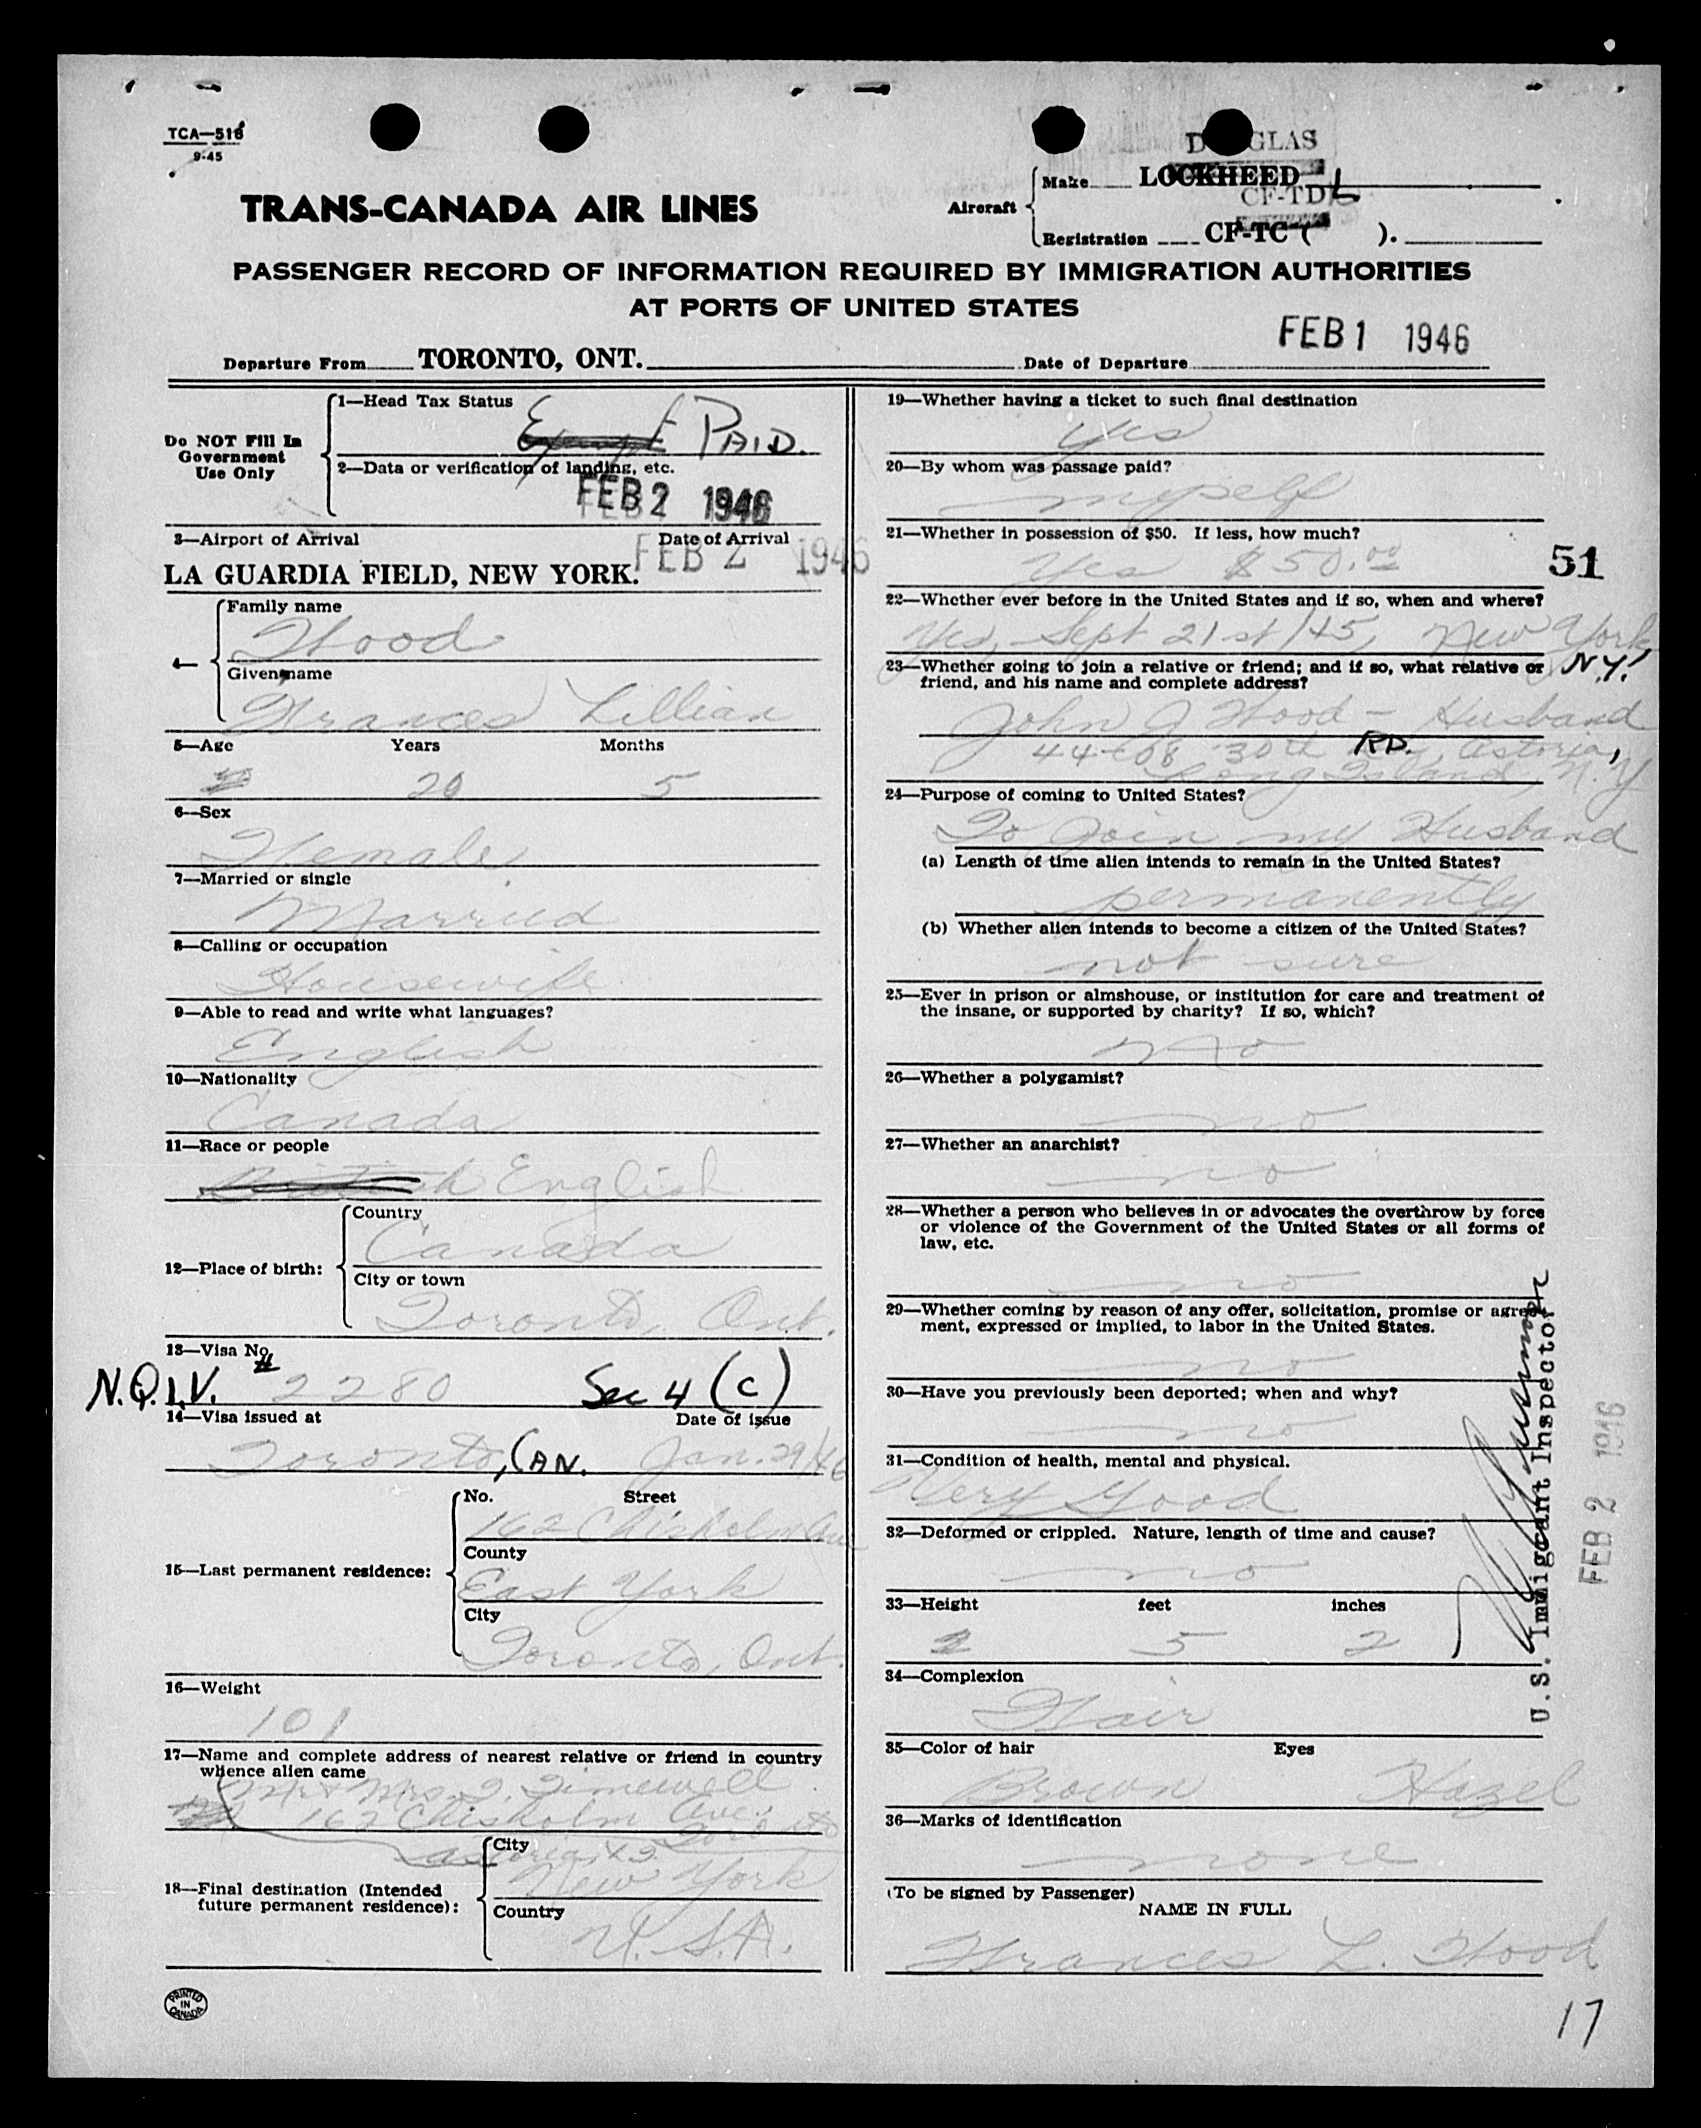 TCA—516
9-45
TRANS-CANADA AIR LINES
DOUGLAS
Aircraft
Make LOCKHEED
CF-TDL
Registration CF-TC ( ).
PASSENGER RECORD OF INFORMATION REQUIRED BY IMMIGRATION AUTHORITIES
AT PORTS OF UNITED STATES
FEB 1 1946
Departure From TORONTO, ONT. Date of Departure
Do NOT Fill In
Government
Use Only
1—Head Tax Status
Exempt PAID.
2—Data or verification of landing, etc.
FEB 2 1946
3—Airport of Arrival Date of Arrival
LA GUARDIA FIELD, NEW YORK. FEB 2 1946
4—
Family name
Hood
Given name
Frances Lillian
5—Age Years Months
20 5
6—Sex
Female
7—Married or single
Married
8—Calling or occupation
Housewife
9—Able to read and write what languages?
English
10—Nationality
Canada
11—Race or people
British English
12—Place of birth:
Country
Canada
City or town
Toronto, Ont.
13—Visa No.
N.Q.I.V. # 2280 Sec 4 (c)
14—Visa issued at Date of issue
Toronto, CAN. Jan. 29/46
15—Last permanent residence:
No. Street
162 Chisholm Ave
County
East York
City
Toronto, Ont.
16—Weight
101
17—Name and complete address of nearest relative or friend in country
whence alien came
Mr & Mrs. J. Timewell
162 Chisholm Ave.,
Toronto
18—Final destination (Intended
future permanent residence):
City
Astoria
New York
Country
U.S.A.
PRINTED
IN
CANADA
19—Whether having a ticket to such final destination
Yes
20—By whom was passage paid?
myself
21—Whether in possession of $50. If less, how much?
Yes $50.00
51
22—Whether ever before in the United States and if so, when and where?
Yes, Sept 21st/45, New York,
N.Y.
23—Whether going to join a relative or friend; and if so, what relative or
friend, and his name and complete address?
John J Hood - Husband
44-08 30th RD. Astoria,
Long Island, N.Y
24—Purpose of coming to United States?
To Join my Husband
(a) Length of time alien intends to remain in the United States?
permanently
(b) Whether alien intends to become a citizen of the United States?
not sure
25—Ever in prison or almshouse, or institution for care and treatment of
the insane, or supported by charity? If so, which?
no
26—Whether a polygamist?
no
27—Whether an anarchist?
no
28—Whether a person who believes in or advocates the overthrow by force
or violence of the Government of the United States or all forms of
law, etc.
no
29—Whether coming by reason of any offer, solicitation, promise or agree-
ment, expressed or implied, to labor in the United States.
no
30—Have you previously been deported; when and why?
no
31—Condition of health, mental and physical.
Very Good
32—Deformed or crippled. Nature, length of time and cause?
no
33—Height feet inches
5 2
34—Complexion
Fair
35—Color of hair Eyes
Brown Hazel
36—Marks of identification
none
(To be signed by Passenger)
NAME IN FULL
Frances L. Hood
U.S. Immigrant Inspector
FEB 2 1946
17